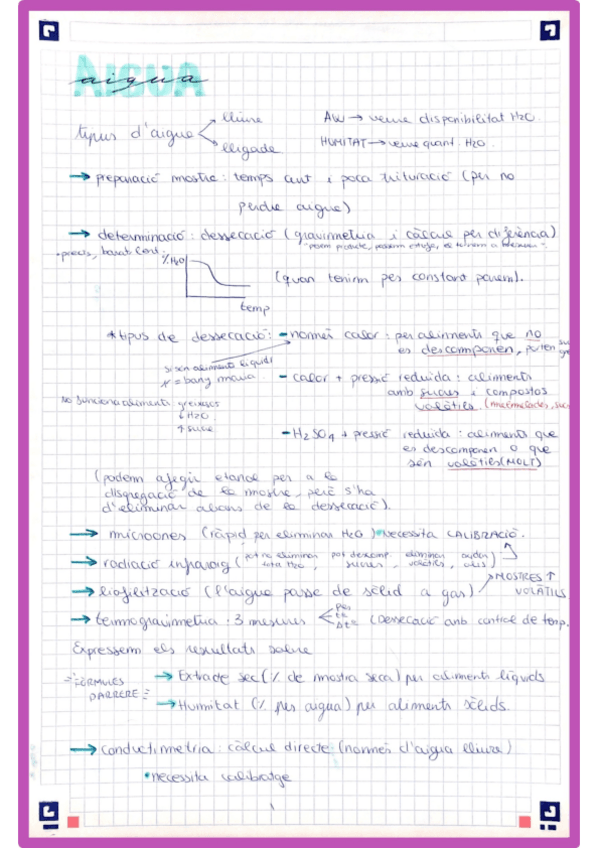 AIGUA
aigua
tipus d'aigua
lliure
lligada
AW → veure disponibilitat H2O.
HUMITAT → veure quant. H2O
→ preparació mostra: temps curt i poca trituració (per no
perdre aigua)
→ determinació: dessecació (gravimetria i càlcul per diferència)
• precís, barat, lent.
%H2O
temp
(quan tenim pes constant parem).
* tipus de dessecació: - només calor: per aliments que no
es descomponen, porten
si són aliments líquids
= bany maria
- calor + pressió reduïda: aliments
amb sucres i compostos
volàtils. (melmelades,
no funciona aliments greixosos
↓H2O
↑ sucre
- H2SO4 + pressió reduïda: aliments que
es descomponen o que
són volàtils (MOLT)
(podem afegir etanol per a la
disgregació de la mostra, però s'ha
d'eliminar abans de la dessecació).
→ microones (ràpid per eliminar H2O) necessita CALIBRACIÓ.
→ radiació infraroig (pot no eliminar tota H2O, pot descomp. sucres, eliminar volàtils, olis)
→ liofilització (l'aigua passa de sòlid a gas)
MOSTRES ↑
VOLÀTILS
→ termogravimetria: 3 mesures
pes
Δt
(Dessecació amb control de temp.
Expressem els resultats sobre
FÓRMULES
DARRERE
→ Extracte sec (% de mostra seca) per aliments líquids
→ Humitat (% pes aigua) per aliments sòlids.
→ conductimetria: càlcul directe (només d'aigua lliure)
• necessita calibratge
1